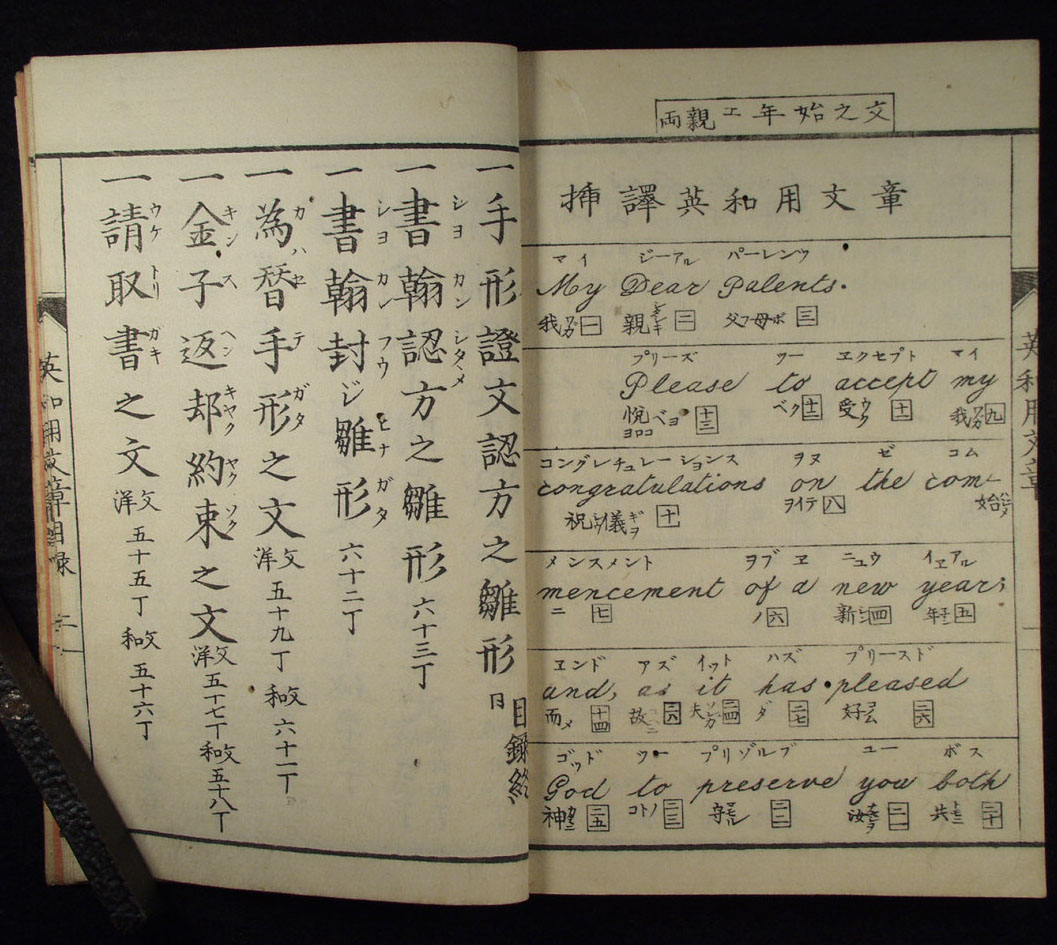 一請取書之文 洋文 五十五丁 和文 五十六丁
ウケ トリ ガキ
一金子返却約束之文 洋文 五十七丁 和文 五十八丁
キン ス ヘン キヤク ヤク ソク
一為替手形之文 洋文 五十九丁 和文 六十一丁
カハセ テ ガタ
一書翰封ジ雛形 六十二丁
シヨ カン フウ ヒナ ガタ
一書翰認方之雛形 六十三丁
シヨ カン シタヽメ
一手形證文認方之雛形
目録終
英和用文章目録
二
両親エ年始之文
挿譯英和用文章
マイ ジーアル パーレンツ
My Dear Palents.
我 一 親 二 父母 三
プリーズ ツー エクセプト マイ
Please to accept my
悦ベヨ 十三 ベク 十二 受 十一 我 九
コングレチュレーションス ヲヌ ゼ コム
congratulations on the com-
祝儀ギヲ 十 ヲイテ 八 始
メンスメント ヲブ エ ニュウ イエアル
mencement of a new year;
ニ 七 ノ 六 新 四 年 五
エンド アズ イット ハズ プリースド
and, as it has pleased
而 十四 故 二八 夫 二四 ダ 二七 好 二六
ゴッド ツー プリゾルブ ユー ボス
God to preserve you both
神 二五 コトノ 二三 守 二二 汝 二一 共 二十
英和用文章